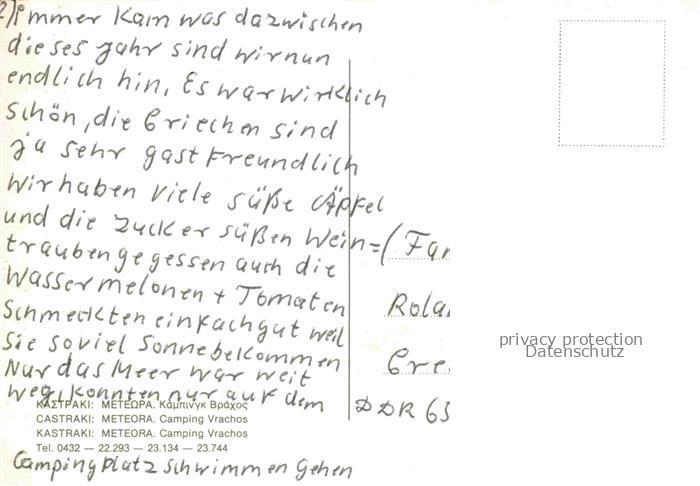 2) immer kam was dazwischen
dieses Jahr sind wir nun
endlich hin, Es war wirklich
schön, die Griechen sind
ja sehr gastfreundlich
Wir haben viele süße Äpfel
und die zuckersüßen Wein=
trauben gegessen auch die
Wassermelonen + Tomaten
schmeckten einfach gut weil
Sie soviel Sonne bekommen
Nur das Meer war weit
weg, konnten nur auf dem
ΚΑΣΤΡΑΚΙ: ΜΕΤΕΩΡΑ. Κάμπινγκ Βράχος
CASTRAKI: METEORA. Camping Vrachos
KASTRAKI: METEORA. Camping Vrachos
Tel. 0432 — 22.293 — 23.134 — 23.744
Campingplatz schwimmen gehen
(Fam
Rola
Gre
DDR 63
privacy protection
Datenschutz